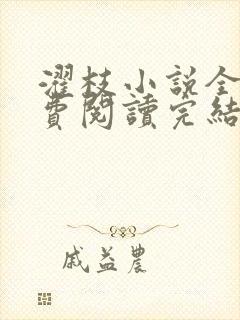 濯枝小說全
費閱讀完結
戚益農